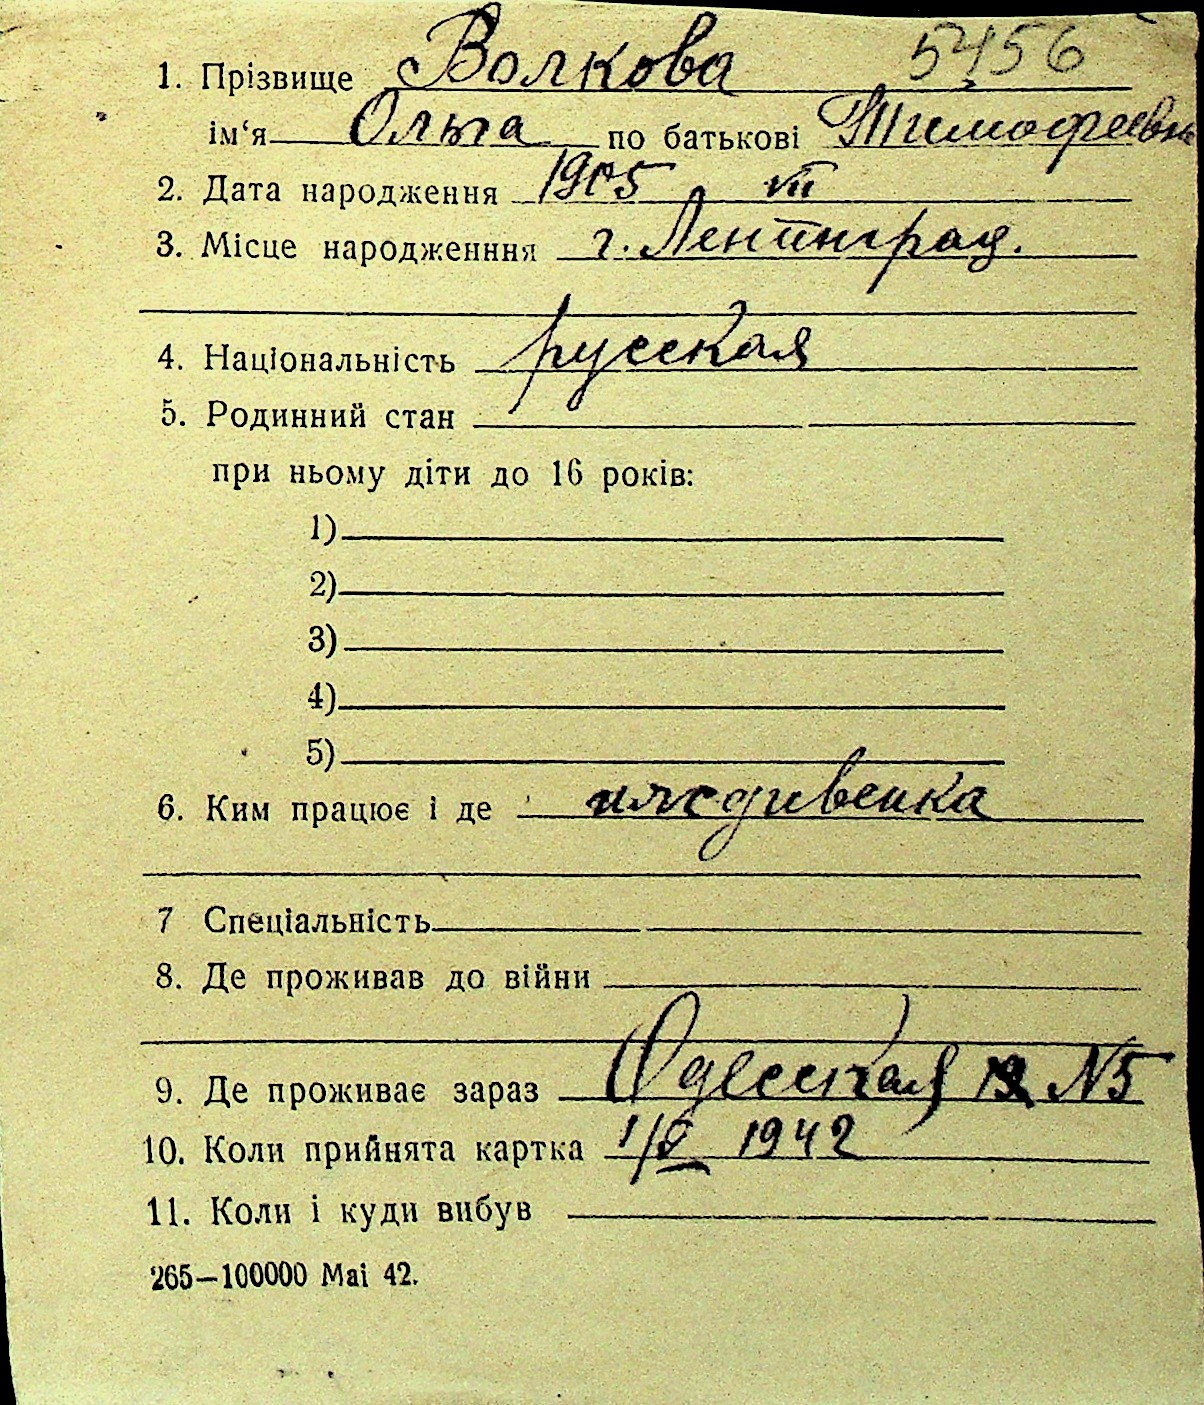 5456
1. Прізвище Волкова
ім‘я Ольга по батькові Тимофеевна
2. Дата народження 1905 VII
3. Місце народженння г. Ленинград.
4. Національність русская
5. Родинний стан
при ньому діти до 16 років:
1)
2)
3)
4)
5)
6. Ким працює і де иждивенка
7 Спеціальність
8. Де проживав до війни
9. Де проживає зараз Одесская N5
10. Коли прийнята картка 1/V 1942
11. Коли і куди вибув
265—100000 Маі 42.